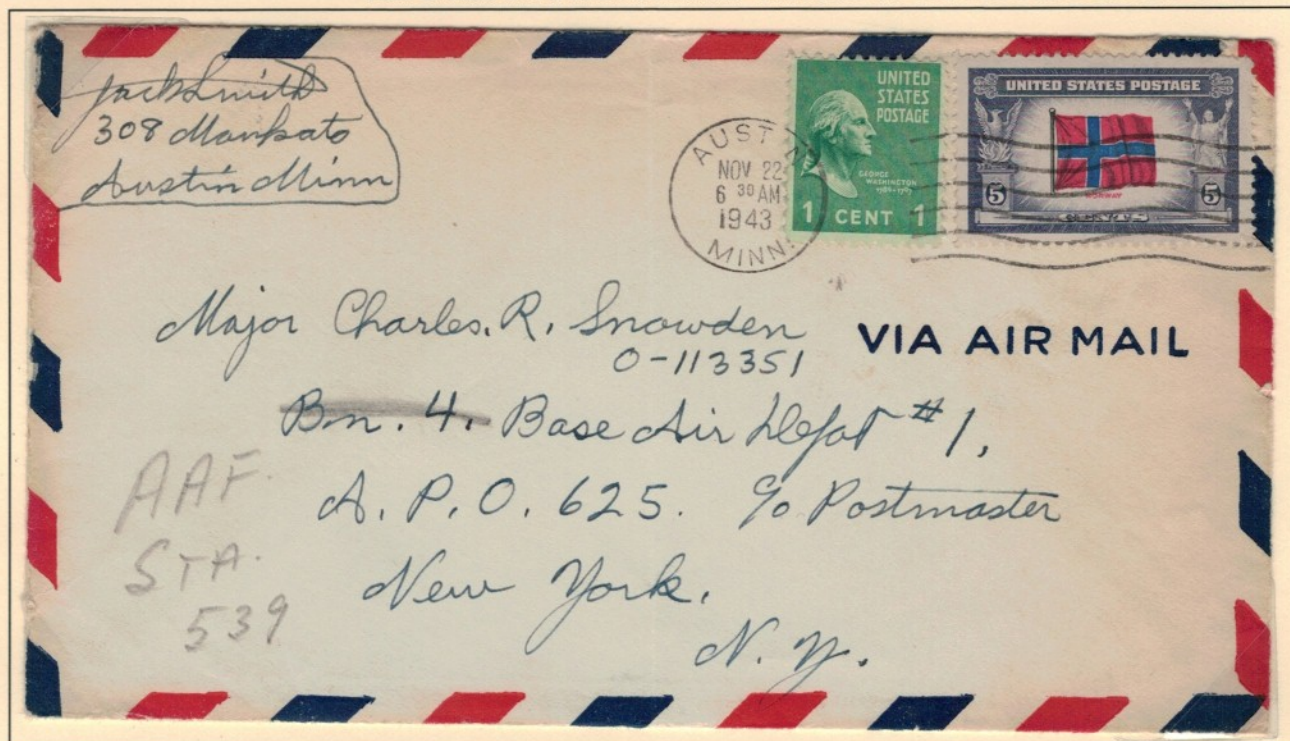 Jack Smith
308 Mankato
Austin Minn
AUSTIN
NOV 22
6 30 AM
1943
MINN.
UNITED
STATES
POSTAGE
GEORGE
WASHINGTON
1789-1797
1 CENT 1
UNITED STATES POSTAGE
NORWAY
5 CENTS 5
Major Charles. R. Snowden
O-113351
VIA AIR MAIL
Bn. 4. Base Air Depot #1,
A. P. O. 625. c/o Postmaster
New York.
N. Y.
AAF.
STA.
539